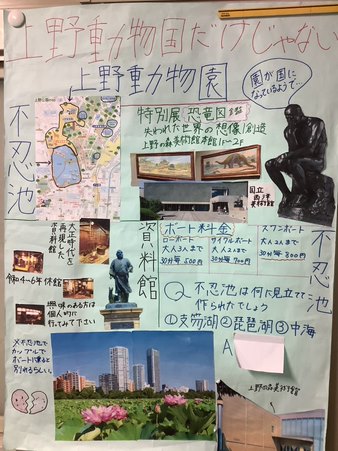 上野動物国だけじゃない
上野動物園
園が国に
なっているようで…
不忍池
特別展 恐竜図鑑
失われた世界の想像/創造
上野の森美術館 本館1F〜2F
国立
西洋
美術館
大正時代を
再現した
資料館
資料館
令和4〜6年休館
興味のある方は
個人的に
行ってみて下さい
不忍池
ボート料金
ローボート
大人2人まで
30分毎500円
サイクルボート
大人2人まで
30分毎700円
スワンボート
大人2人まで
30分毎800円
Q 不忍池は何に見立てて
作られたでしょう
①支笏湖②琵琶湖③中海
A
※不忍池で
カップルで
ボートに乗ると
別れるらしい。
上野の森美術館